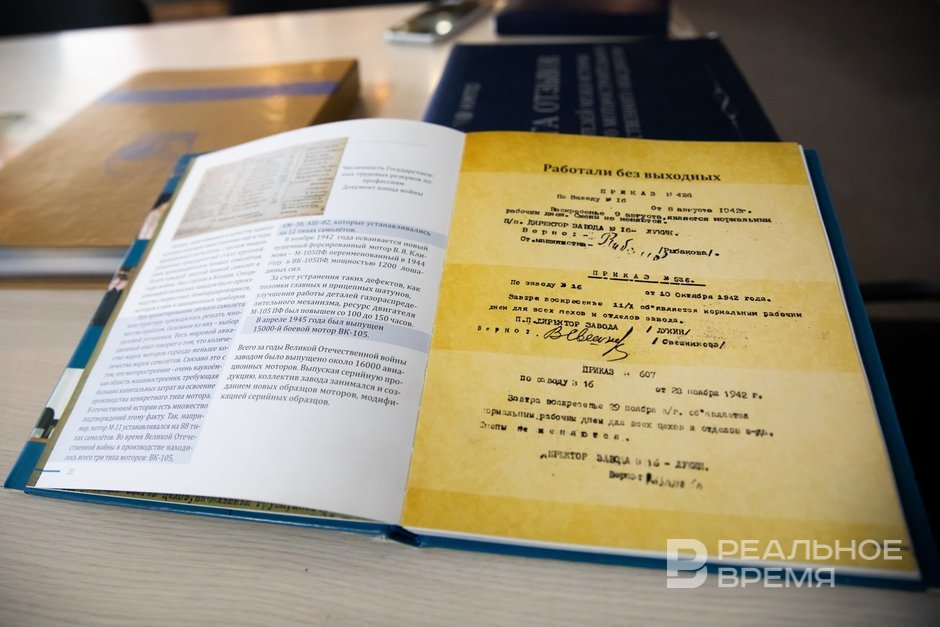 ГА ОТЗЫВ
Численность Государствен-
ных трудовых резервов по
профессиям.
Документ конца войны
АМ-38, АШ-82, которые устанавливались
на 12 типах самолётов.
В ноябре 1942 года осваивается новый
пушечный форсированный мотор В. Я. Кли-
мова – М-105ПФ, переименованный в 1944
году в ВК-105ПФ, мощностью 1200 лоша-
диных сил.
За счет устранения таких дефектов, как
поломки главных и прицепных шатунов,
улучшения работы деталей газораспреде-
лительного механизма, ресурс двигателя
М-105 ПФ был повышен со 100 до 150 часов.
В апреле 1945 года был выпущен
15000-й боевой мотор ВК-105.
Всего за годы Великой Отечественной войны
заводом было выпущено около 16000 авиа-
ционных моторов. Выпуская серийную про-
дукцию, коллектив завода занимался и соз-
данием новых образцов моторов, модифи-
кацией серийных образцов.
конструктору приходилось решать много
проблем, основная из них – выбор
силовой установки. Весь мировой авиа-
опыт говорит о том, что количе-
ство марок моторов гораздо меньше ко-
личества марок самолётов. Связано это с
тем, что моторостроение – очень наукоём-
кая область машиностроения, требующая
больших капитальных затрат на освоение
производства конкретного типа мотора.
В отечественной истории есть множество
подтверждений этому факту. Так, напри-
мер, мотор М-11 устанавливался на 88 ти-
пах самолётов. Во время Великой Отече-
ственной войны в производстве находи-
лось всего три типа моторов: ВК-105,
20
Работали без выходных
ПРИКАЗ № 426
По Заводу № 16 От 8 августа 1942г.
Воскресенье 9 августа, является нормальным
рабочим днем. Смены не меняются.
П/п. ДИРЕКТОР ЗАВОДА № 16- ЛУКИН.
Верно:- /Рыбакова/
Ст.машинистка-
ПРИКАЗ № 536.
По заводу № 16 от 10 Октября 1942 года.
Завтра воскресенье 11/Х объявляется нормальным рабочим
днем для всех цехов и отделов завода.
П.П.ДИРЕКТОР ЗАВОДА /ЛУКИН/
Верно: /Свешникова/
ПРИКАЗ № 607
По заводу № 16 от 28 ноября 1942 г.
Завтра воскресенье 29 ноября с/г. объявляется
нормальным рабочим днем для всех цехов и отделов з-да.
Смены не меняются.
ДИРЕКТОР ЗАВОДА № 16 - ЛУКИН.
Верно:
РЕАЛЬНОЕ
ВРЕМЯ